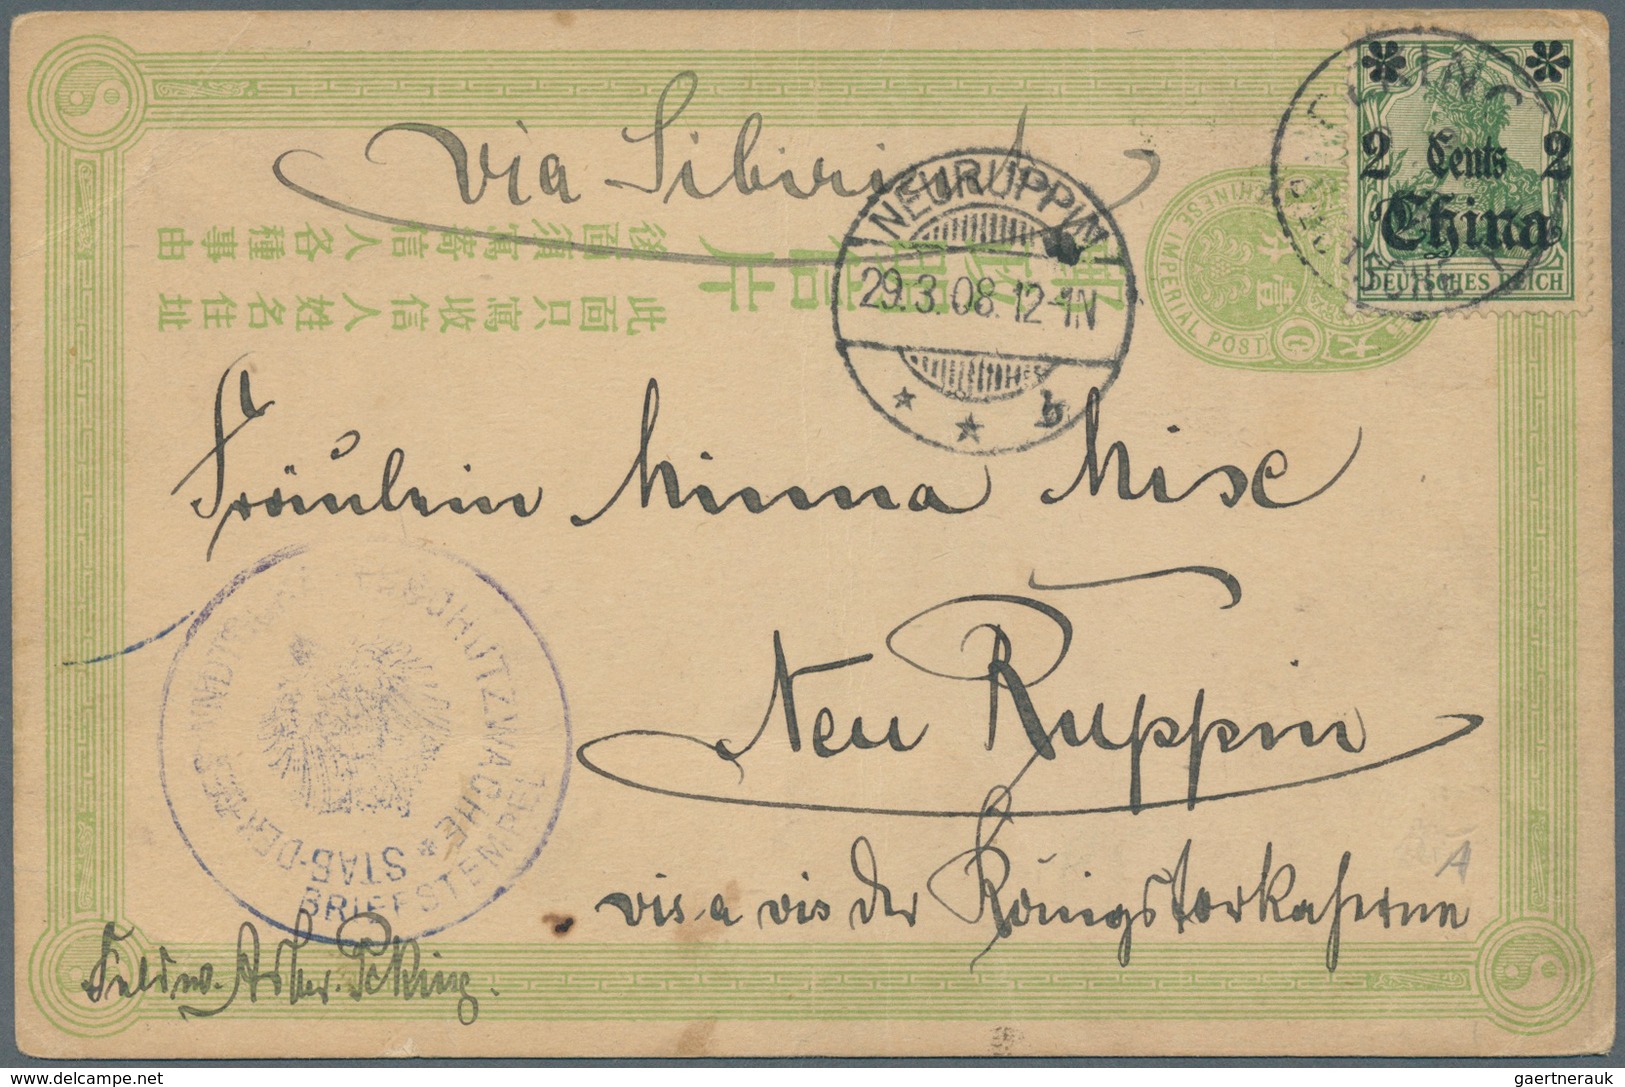 via Sibirien
CHINESE IMPERIAL POST
大
PEKING
DEUTSCHE POST
2 Cents 2
China
DEUTSCHES REICH
NEURUPPIN
29.3.08.12-1N
* * b
郵政信片
後面須寫寄信人各種事由
此面只寫收信人姓名住址
Fräulein Minna Mise
Neu Ruppin
vis-a vis der Königstorkaserne
GESANDTSCHAFTSSCHUTZWACHE
STAB-DER
BRIEFSTEMPEL
Peking.
A
gaertnerauk